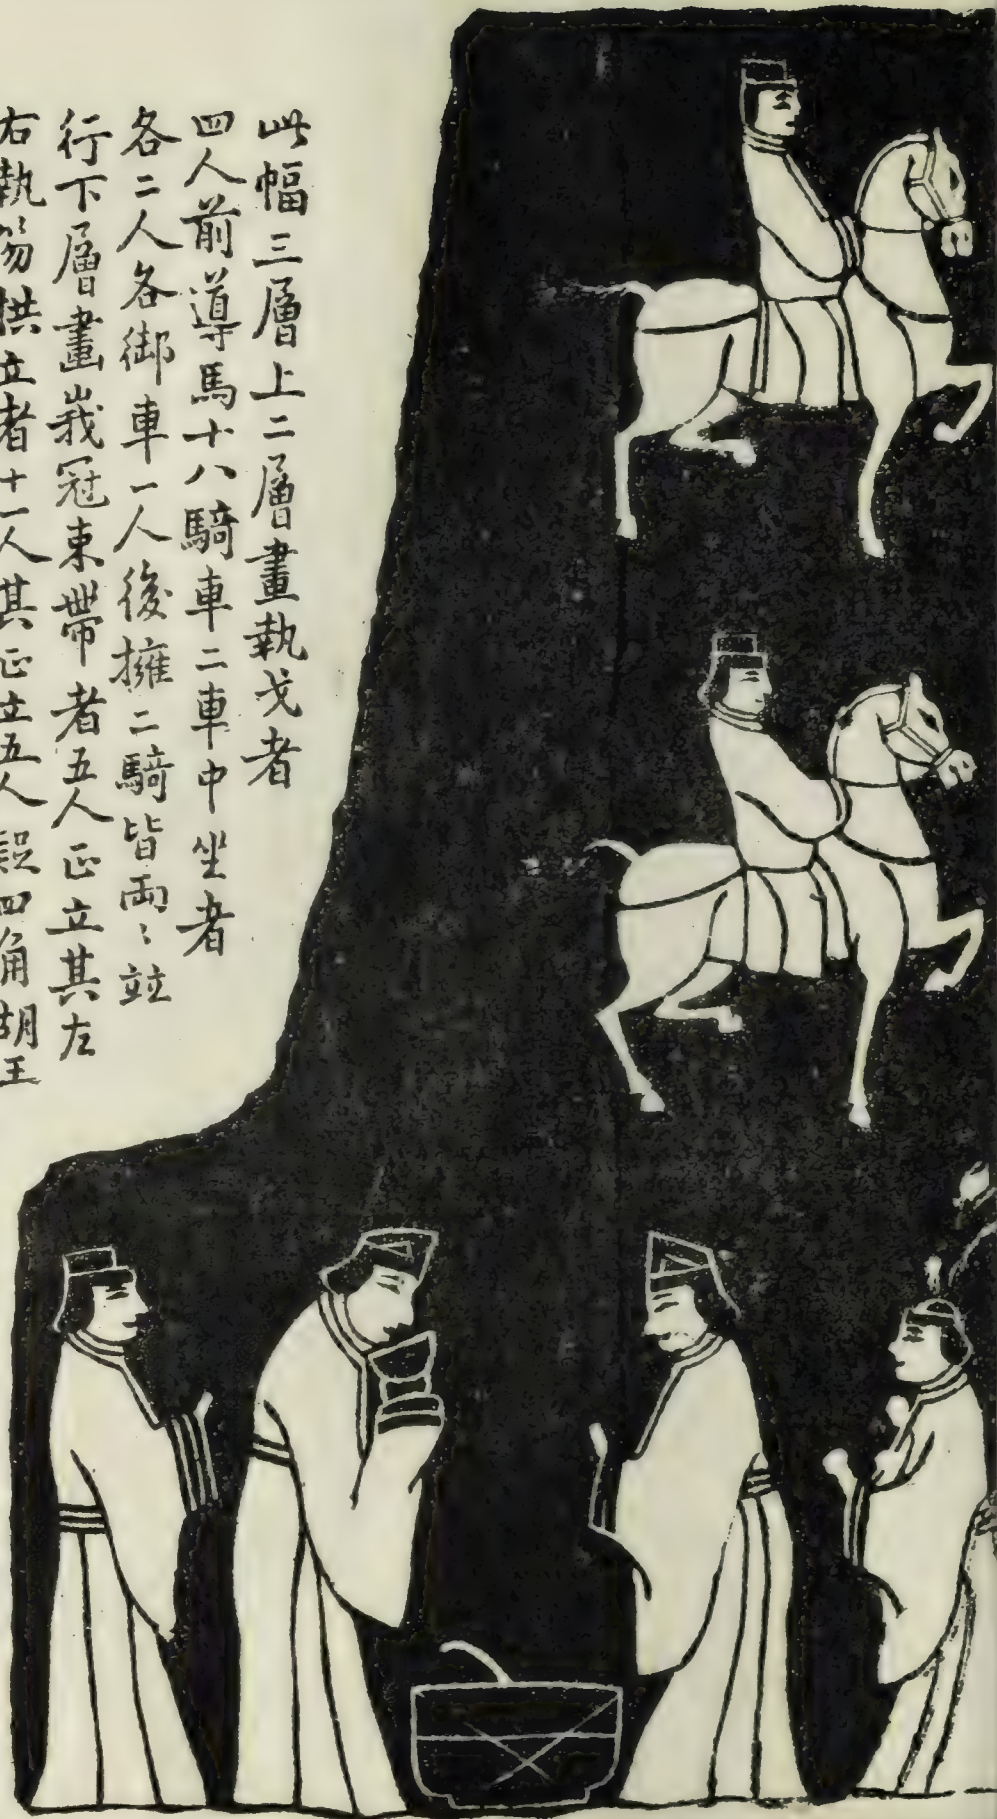 此幅三層上二層畫執戈者
四人前導馬十八騎車二車中坐者
各二人各御車一人後擁二騎皆兩〻竝
行下層畫峩冠束帶者五人正立其左
右執笏拱立者十一人其正立五人疑四角胡王